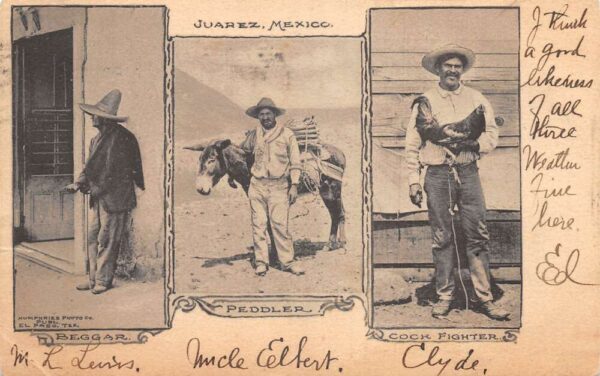 JUAREZ, MEXICO.
I think
a good
likeness
of all
three
Weather
Fine
here.
Ed
HUMPHRIES PHOTO CO.
PUBL.
EL PASO, TEX.
BEGGAR.
PEDDLER.
COCK FIGHTER.
Uncle Elbert.
Clyde.